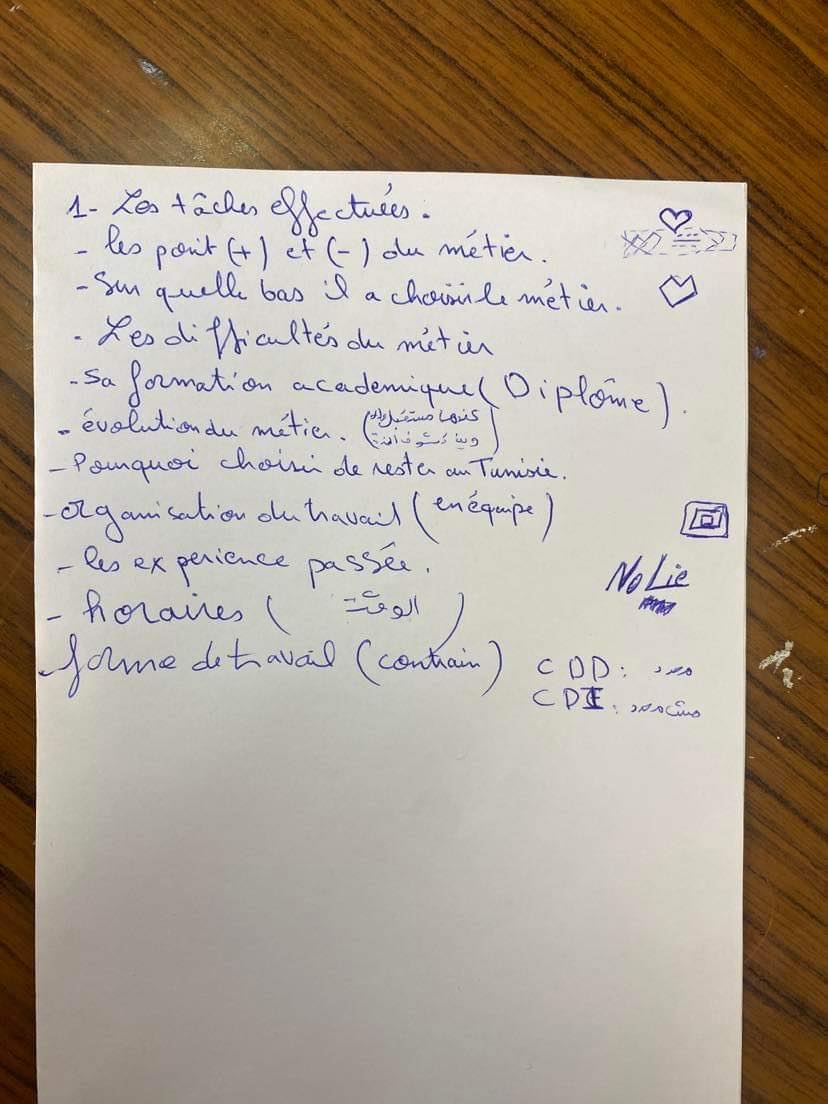 1- Les tâches effectuées.
- les point (+) et (-) du métier.
- Sur quelle bas il a choisir le métier.
- Les difficultés du métier
- Sa formation academique (Diplôme).
- évolution du métier. (
- Pourquoi choisir de rester au Tunisie.
- organisation du travail (en équipe)
- les experience passée.
NoLie
- horaires ( الوقت )
- forme de travail (contrain) CDD: محدد
CDI: مش محدد